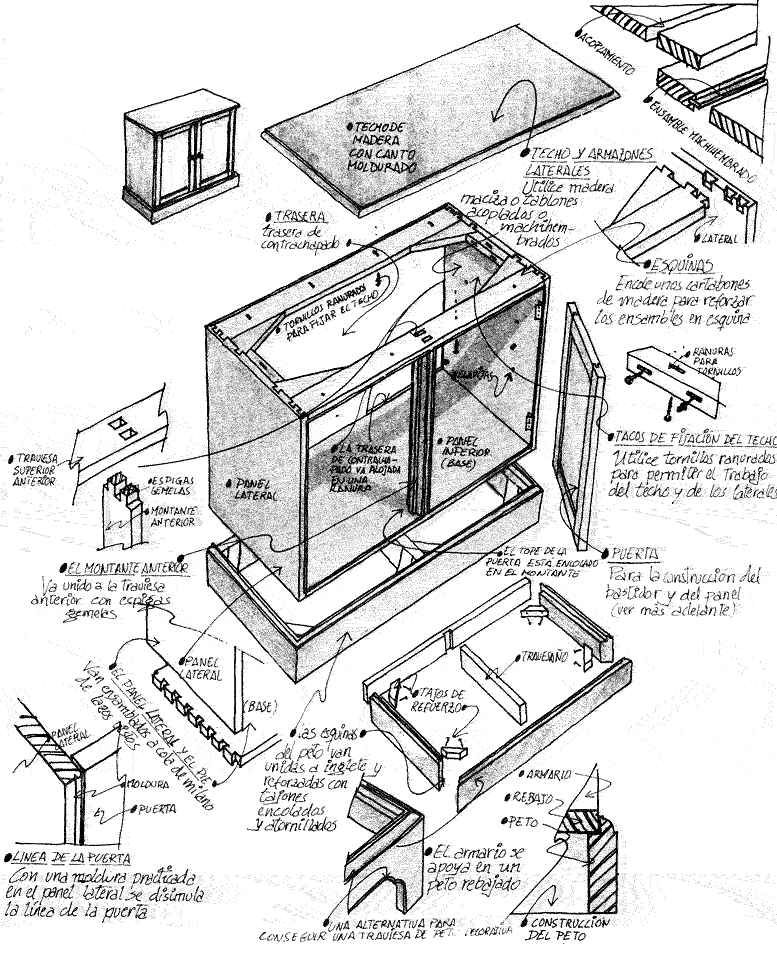 ACOPLAMIENTO
ENSAMBLE MACHIHEMBRADO
TECHO DE
MADERA
CON CANTO
MOLDURADO
TECHO Y ARMAZONES
LATERALES
Utilice madera
maciza o tablones
acoplados o
machihem-
brados
LATERAL
TRASERA
trasera de
contrachapado
ESQUINAS
Encole unos cartabones
de madera para reforzar
los ensambles en esquina
TORNILLOS RANURADOS
PARA FIJAR EL TECHO
RANURAS
PARA
TORNILLOS
TACOS DE FIJACION DEL TECHO
Utilice tornillos ranurados
para permitir el trabajo
del techo y de los laterales
TRAVIESA
SUPERIOR
ANTERIOR
ESPIGAS
GEMELAS
MONTANTE
ANTERIOR
PANEL
LATERAL
LA TRASERA
DE CONTRACHA-
PADO VA ALOJADA
EN UNA
RANURA
PANEL
INFERIOR
(BASE)
EL MONTANTE ANTERIOR
Va unido a la traviesa
anterior con espigas
gemelas
EL TOPE DE LA
PUERTA ESTA ENCOLADO
EN EL MONTANTE
PUERTA
Para la construccion del
bastidor y del panel
(ver más adelante)
PANEL
LATERAL
(BASE)
EL PANEL LATERAL Y EL PIE
Van ensamblados a cola de milano
de lazos
TRAVESAÑO
TAJOS DE
REFUERZO
Las esquinas
del peto van
unidas a inglete y
reforzadas con
tajones
encolados
y atornillados
PANEL
LATERAL
MOLDURA
PUERTA
LINEA DE LA PUERTA
Con una moldura practicada
en el panel lateral se disimula
la línea de la puerta
ARMARIO
REBAJO
PETO
EL armario se
apoya en un
peto rebajado
UNA ALTERNATIVA PARA
CONSEGUIR UNA TRAVIESA DE PETO DECORATIVA
CONSTRUCCION
DEL PETO